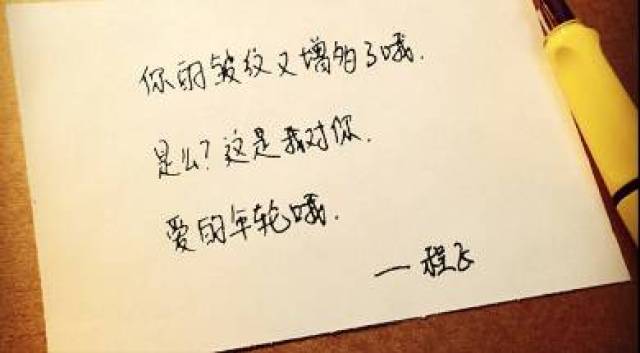 你的皱纹又增多了哦.
是么?这是我对你.
爱的年轮哦.
—程飞